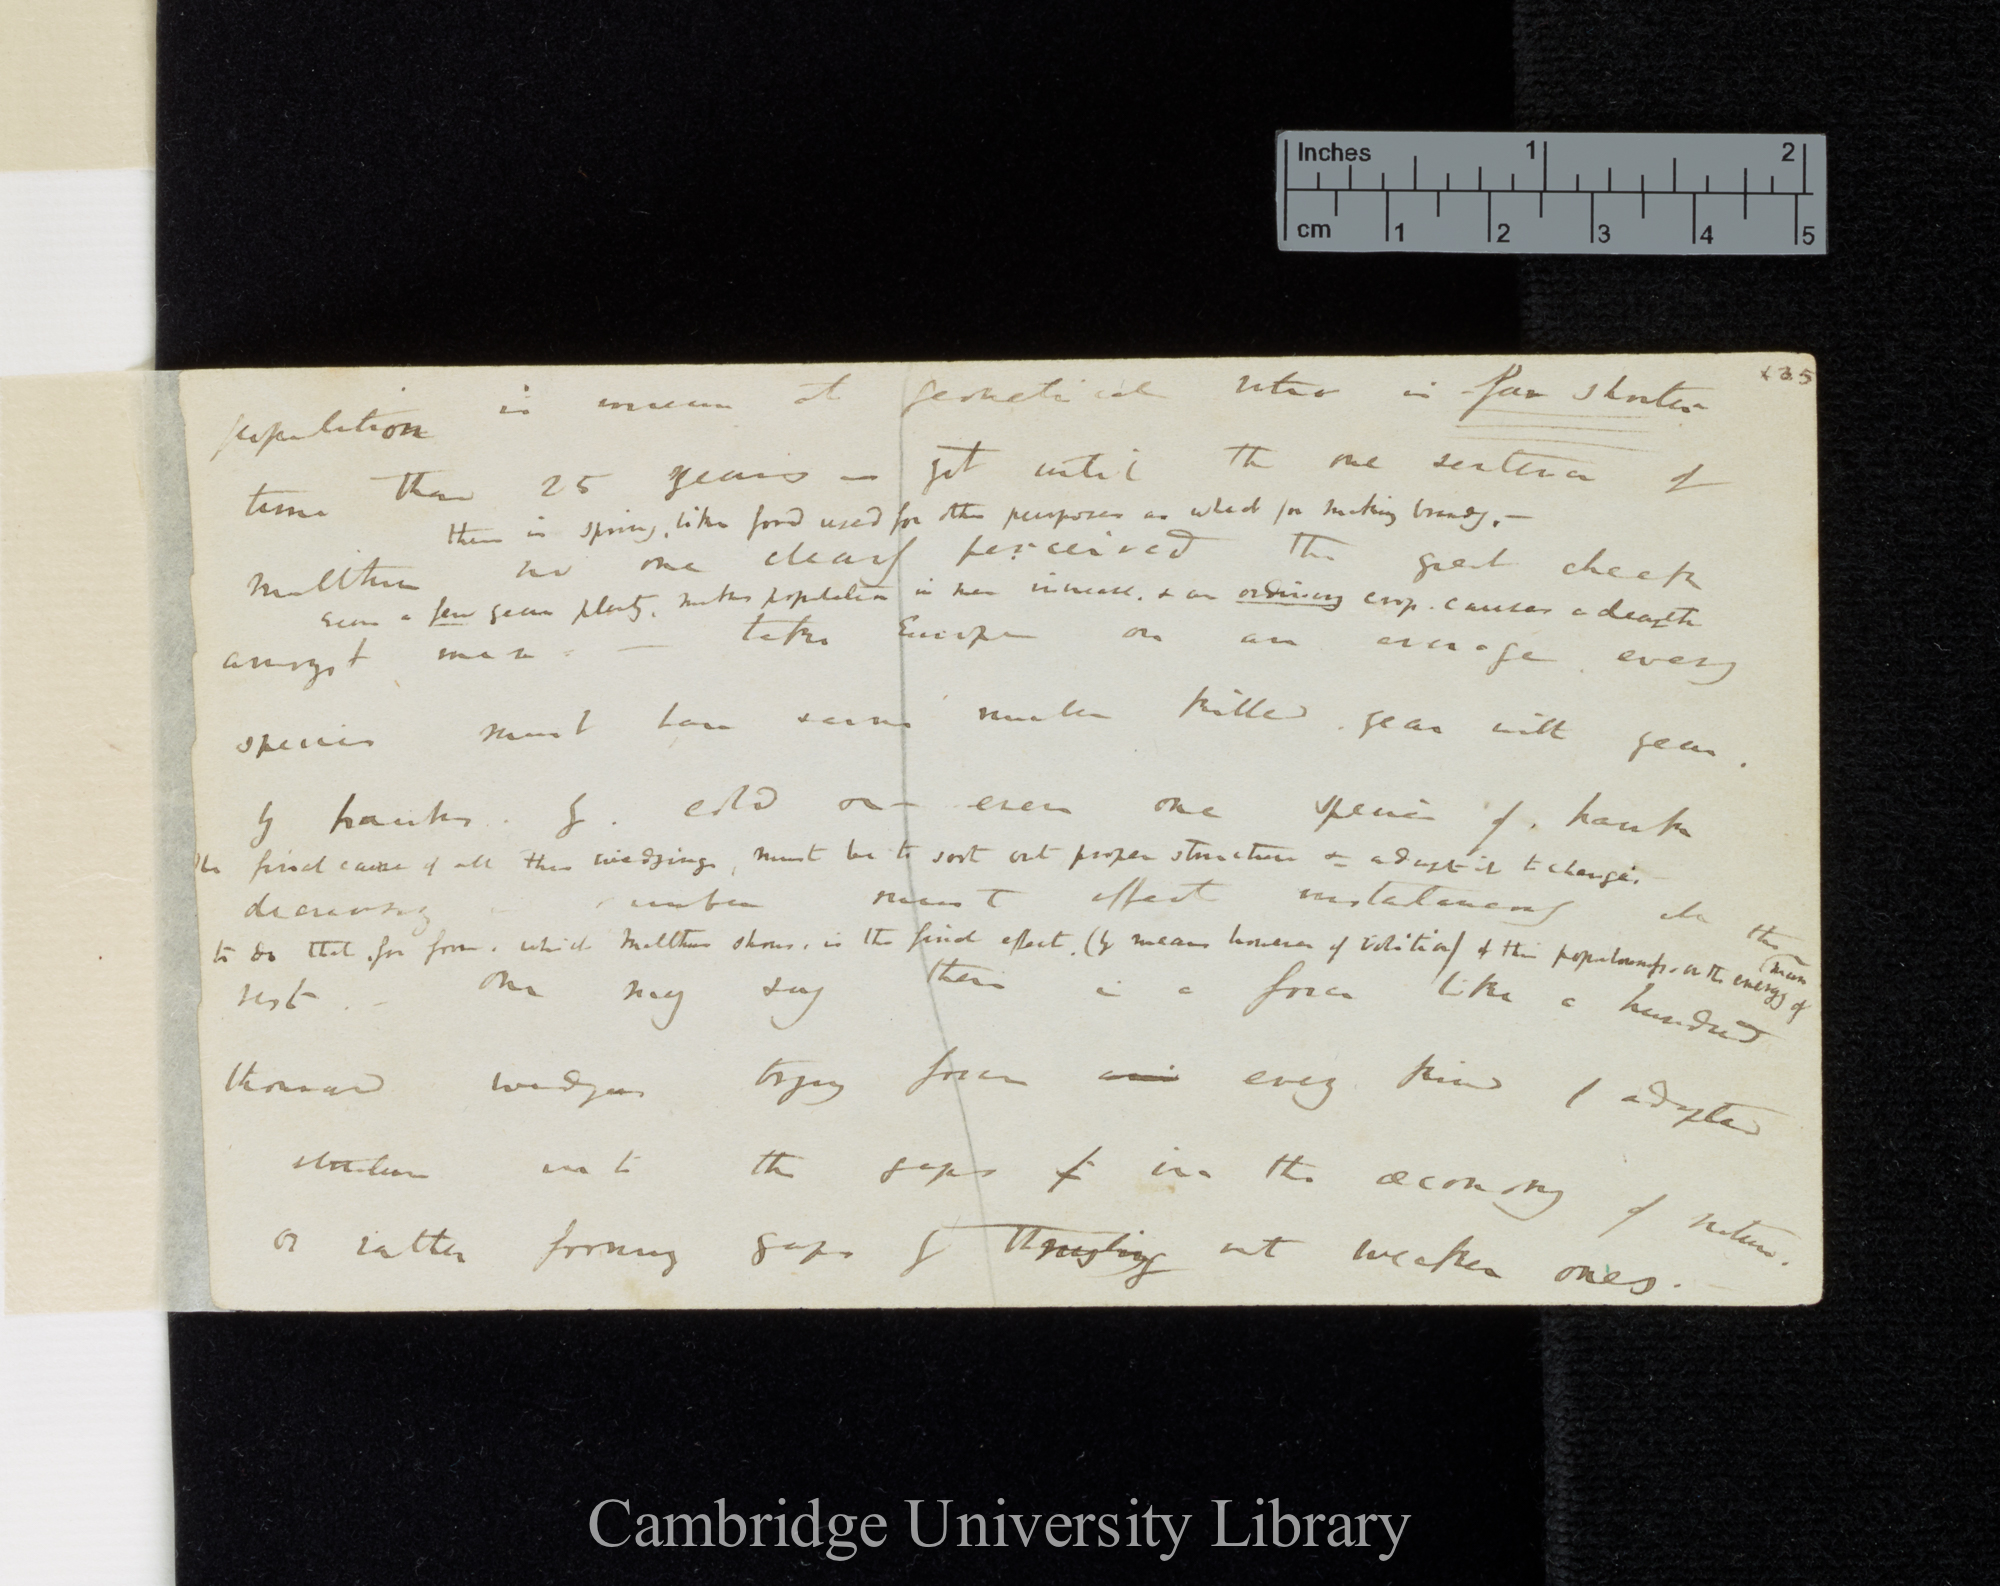 Inches 1 2
cm 1 2 3 4 5
135
population in increase at geometrical ratio in far shorter
time than 25 years — yet until the one sentence of
there is spring, like food used for other purposes as wheat for making brandy. —
Malthus no one clearly perceived the great check
even a few years plenty, makes population in men increase, & an ordinary crop. causes a dearth
amongst men. — take Europe on an average every
species must have same number killed year with year.
by hawks. by. cold &c — even one species of hawk
the final cause of all this wedgings, must be to sort out proper structure & adapt it to change.
decreasing in number must effect instantaneously all the
to do that, for form, which Malthus shows, is the final effect, (by means however of volition) of this populousness, on the energy of man
rest. — One may say there is a force like a hundred
thousand wedges trying force into every kind of adapted
structure into the gaps of in the œconomy of nature,
or rather forming gaps by thrusting out weaker ones. —
Cambridge University Library